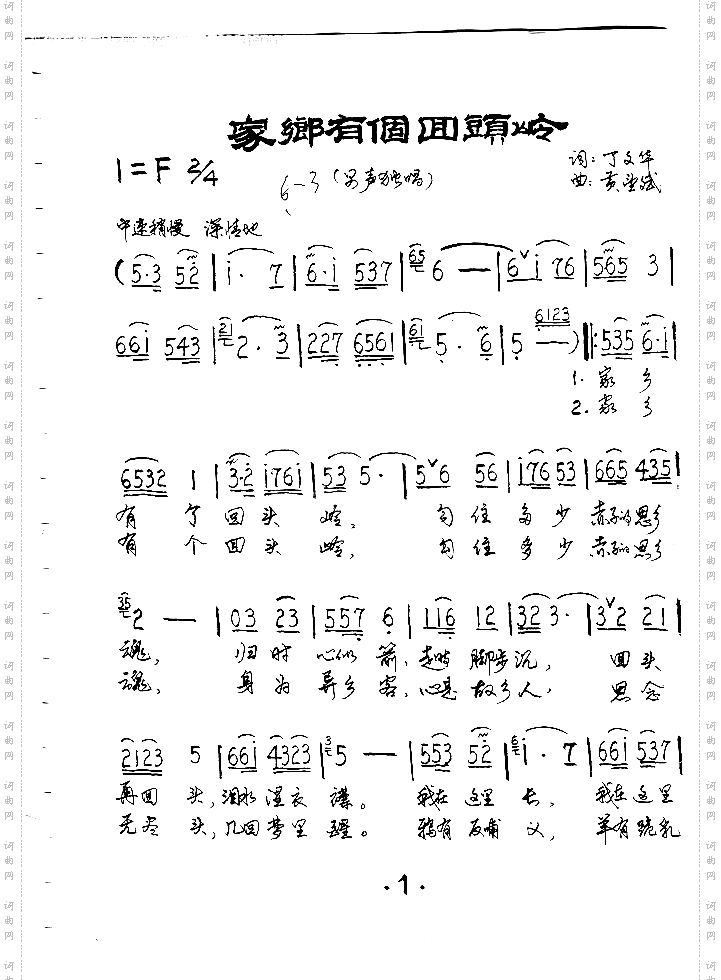 家鄉有個回頭岭
1=F 2/4
6-3（男声独唱）
词:丁文华
曲:黄
中速稍慢 深情地
(5·3 52 | i· 7 | 6·i 537 | 65 6 — | 6 i 76 | 565 3 |
66i 543 | 21 2· 3 | 227 6561 | 61 5· 6 | 5 — 6123 ) ‖: 535 6·i |
1. 家乡
2. 家乡
6532 1 | 3·2 i76i | 53 5· | 5 6 56 | i76 53 | 665 435 |
有个回头岭, 勾住多少赤子的思乡
有个回头岭, 勾住多少赤子的思乡
35 2 — | 03 23 | 557 6 | 116 12 | 323 3· | 3 2 21 |
魂, 归时心似箭, 走时脚步沉, 回头
魂, 身为异乡客, 心是故乡人, 思念
2123 5 | 66i 4323 | 3 5 — | 553 52 | 6 i· 7 | 66i 537 |
再回头, 泪水湿衣襟。 我在这里长, 我在这里
无尽头, 几回梦里醒。 鸦有反哺义, 羊有跪乳
·1·
词曲网